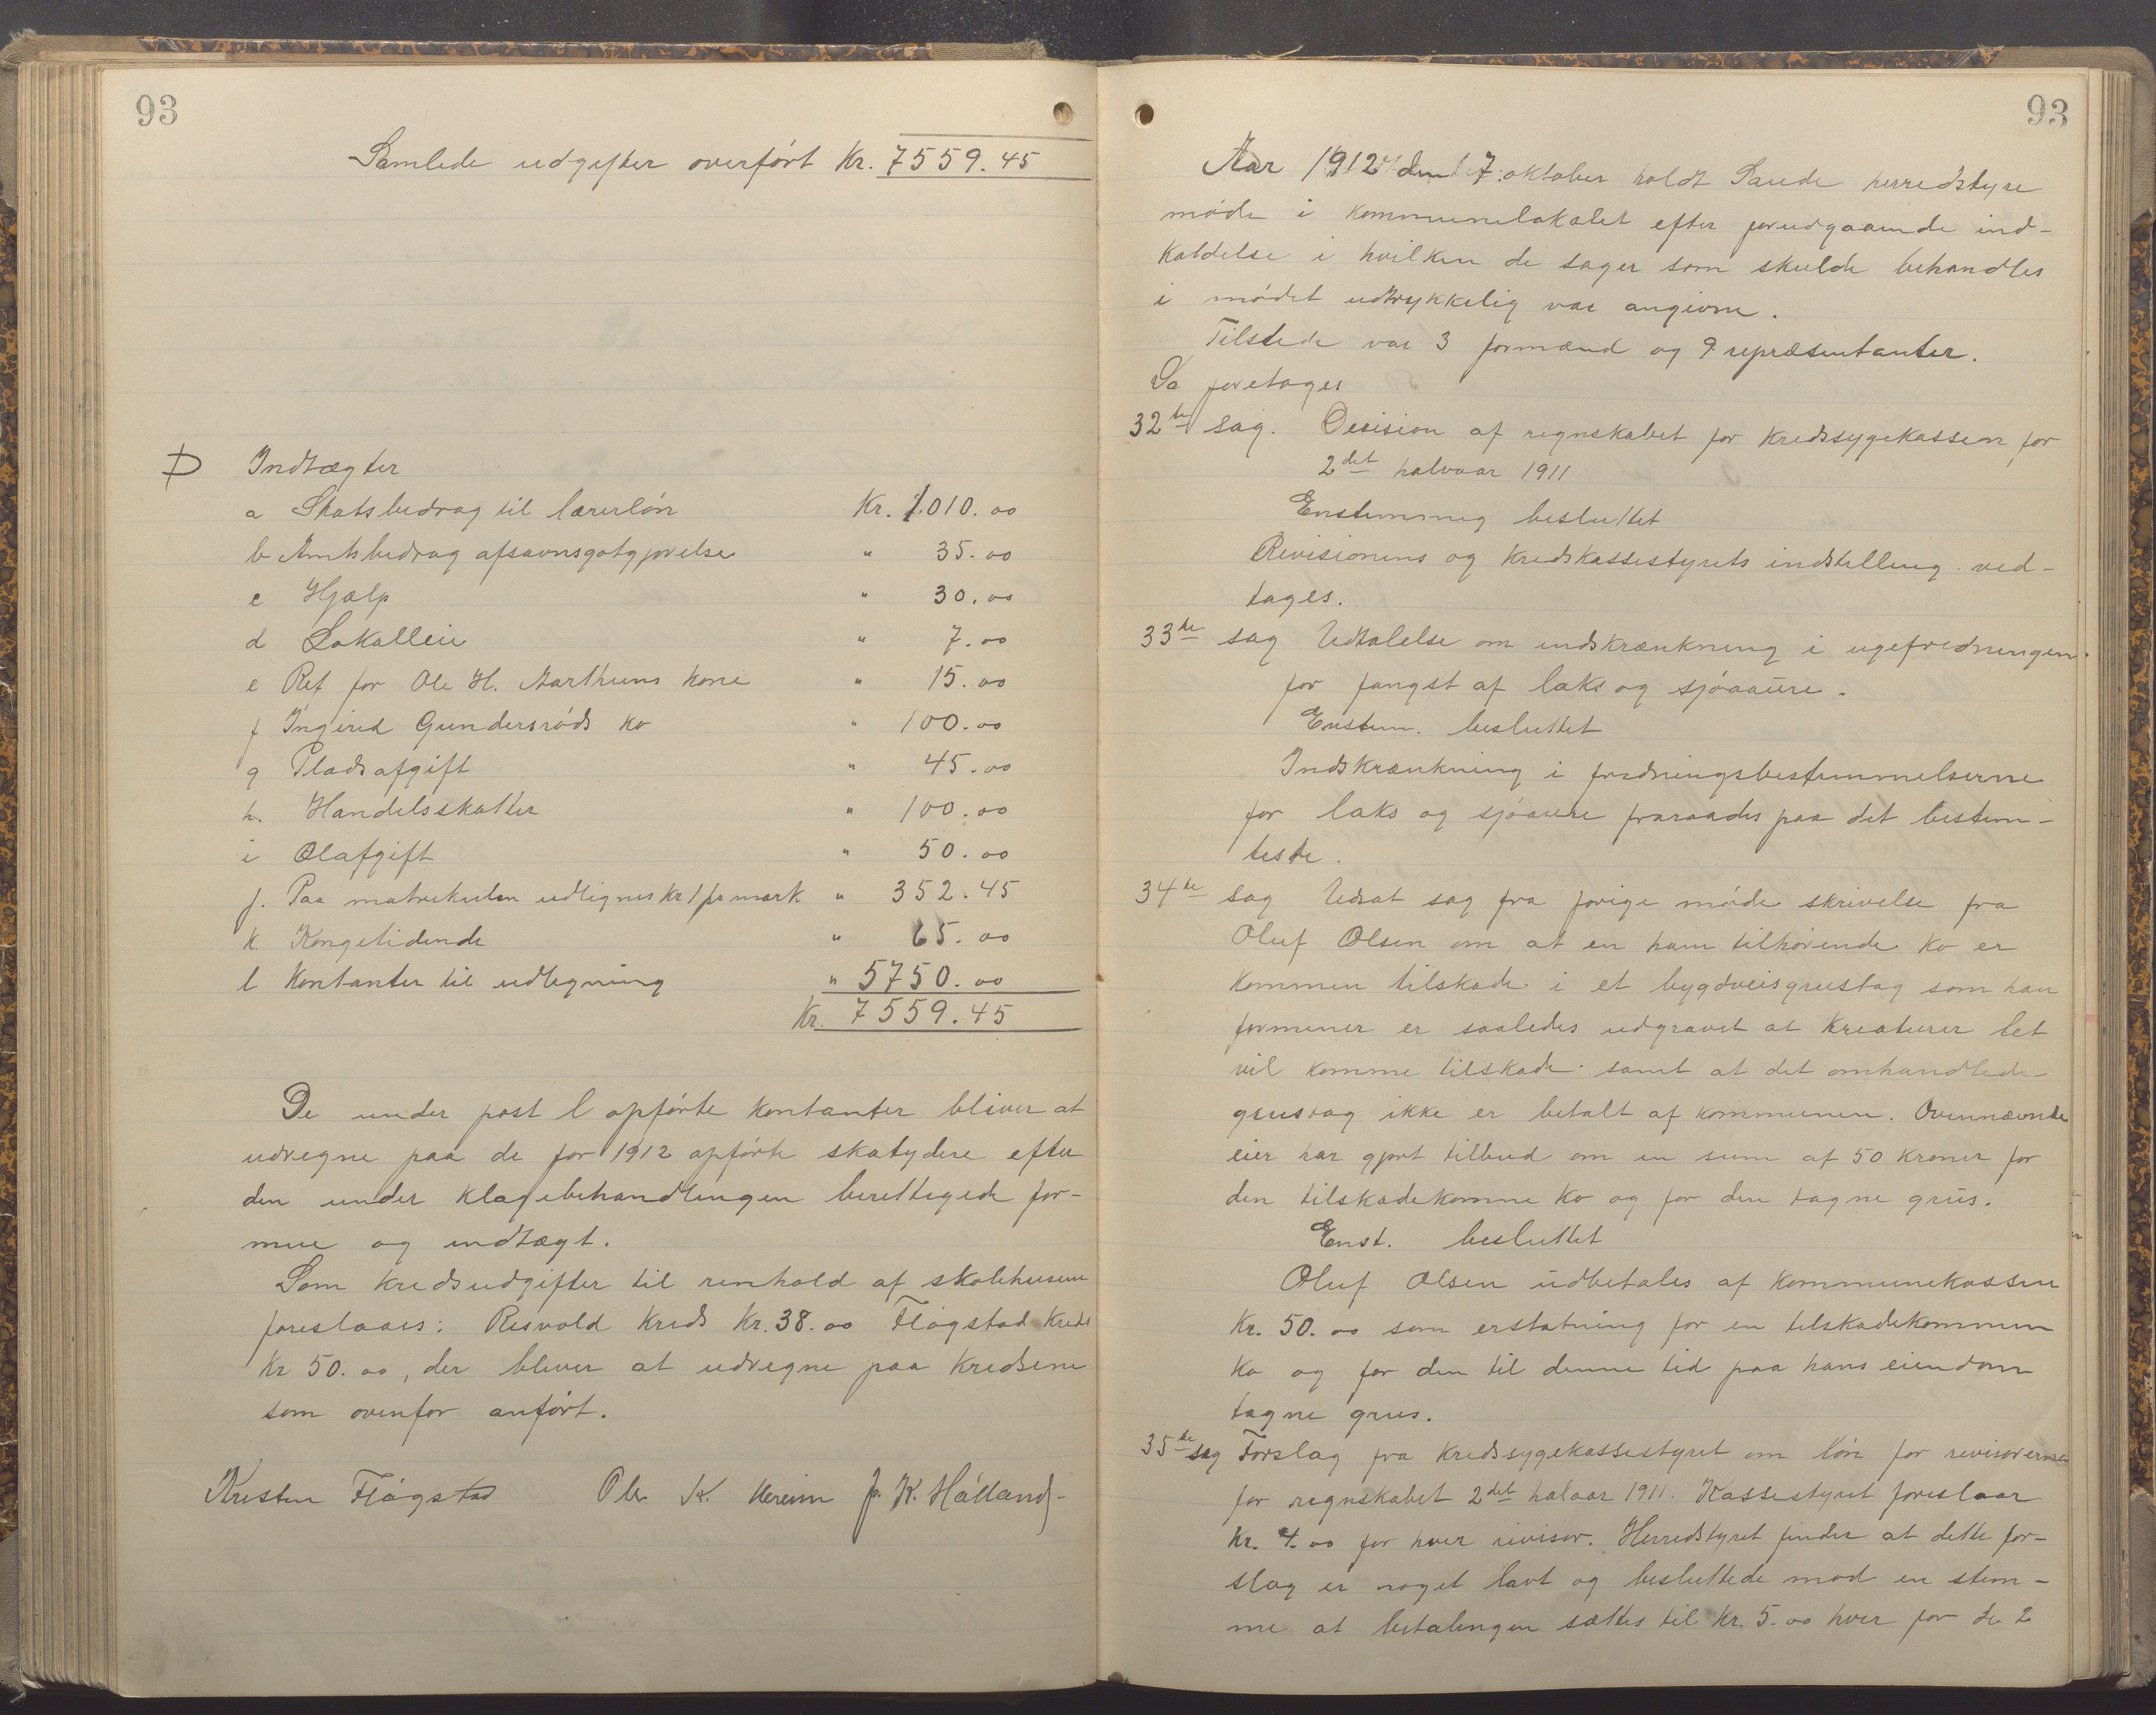 93
Samlede udgifter overført Kr. 7559.45
D Indtægter
a Skatsbedrag til lærerløn Kr. 1010.00
b Amtsbedrag afsavnsgotgjørelse " 35.00
c Hjælp " 30.00
d Lokalleie " 7.00
e Ref for Ole H. Aarthuns kone " 15.00
f Ingerid Gundersrøds ko " 100.00
g Pladsafgift " 45.00
h. Handelsskatter " 100.00
i Ølafgift " 50.00
j. Paa matrikulen udlignes kr 1 pr mark " 352.45
k. Kongetidende " 65.00
l Kontanter til udligning " 5750.00
Kr. 7559.45
De under post l opførte kontanter bliver at
udregne paa de for 1912 opførte skatydere efter
den under klagebehandlingen berettigede for-
mue og indtægt.
Som kredsudgifter til renhold af skolehusene
foreslaaes: Risvold kreds Kr. 38.00 Fløgstad kreds
Kr 50.00, der bliver at udregne paa kredsene
som ovenfor anført.
Kristen Fløgstad Ole K. J. K. Hålland
93
Aar 1912 den 7. oktober holdt Saude herredstyre
møde i kommunelokalet efter forudgaaende ind-
kaldelse i hvilken de sager som skulde behandles
i mødet udtrykkelig var angivne.
Tilstede var 3 formænd og 9 repræsentanter.
Da foretages
32te sag. Decision af regnskabet for kredssygekassen for
2det halvaar 1911
Enstemmig besluttet
Revisionens og kredskassestyrets indstilling ved-
tages.
33te sag Udtalelse om indskrænkning i ugefredningen
for fangst af laks og sjøaaure.
Enstem. besluttet
Indskrænkning i fredningsbestemmelserne
for laks og sjøaure fraraades paa det bestem-
teste.
34te sag Udsat sag fra forige møde skrivelse fra
Oluf Olsen om at en ham tilhørende ko er
kommen tilskade i et bygdveisgrustag som han
formener er saaledes udgravet at kreaturer let
vil komme tilskade samt at det omhandlede
grustag ikke er betalt af kommunen. Ovennævnte
eier har gjort tilbud om en sum af 50 kroner for
den tilskadekomne ko og for den tagne grus.
Enst. besluttet
Oluf Olsen udbetales af kommunekassen
Kr. 50.00 som erstatning for en tilskadekommen
ko og for den til denne tid paa hans eiendom
tagne grus.
35te sag Forslag fra kredssygekassestyret om løn for revisorerne
for regnskabet 2det halaar 1911. Kassestyret foreslaar
Kr. 4.00 for hver revisor. Herredstyret finder at dette for-
slag er noget lavt og besluttede mod en stem-
me at betalingen sættes til Kr. 5.00 hver for de 2